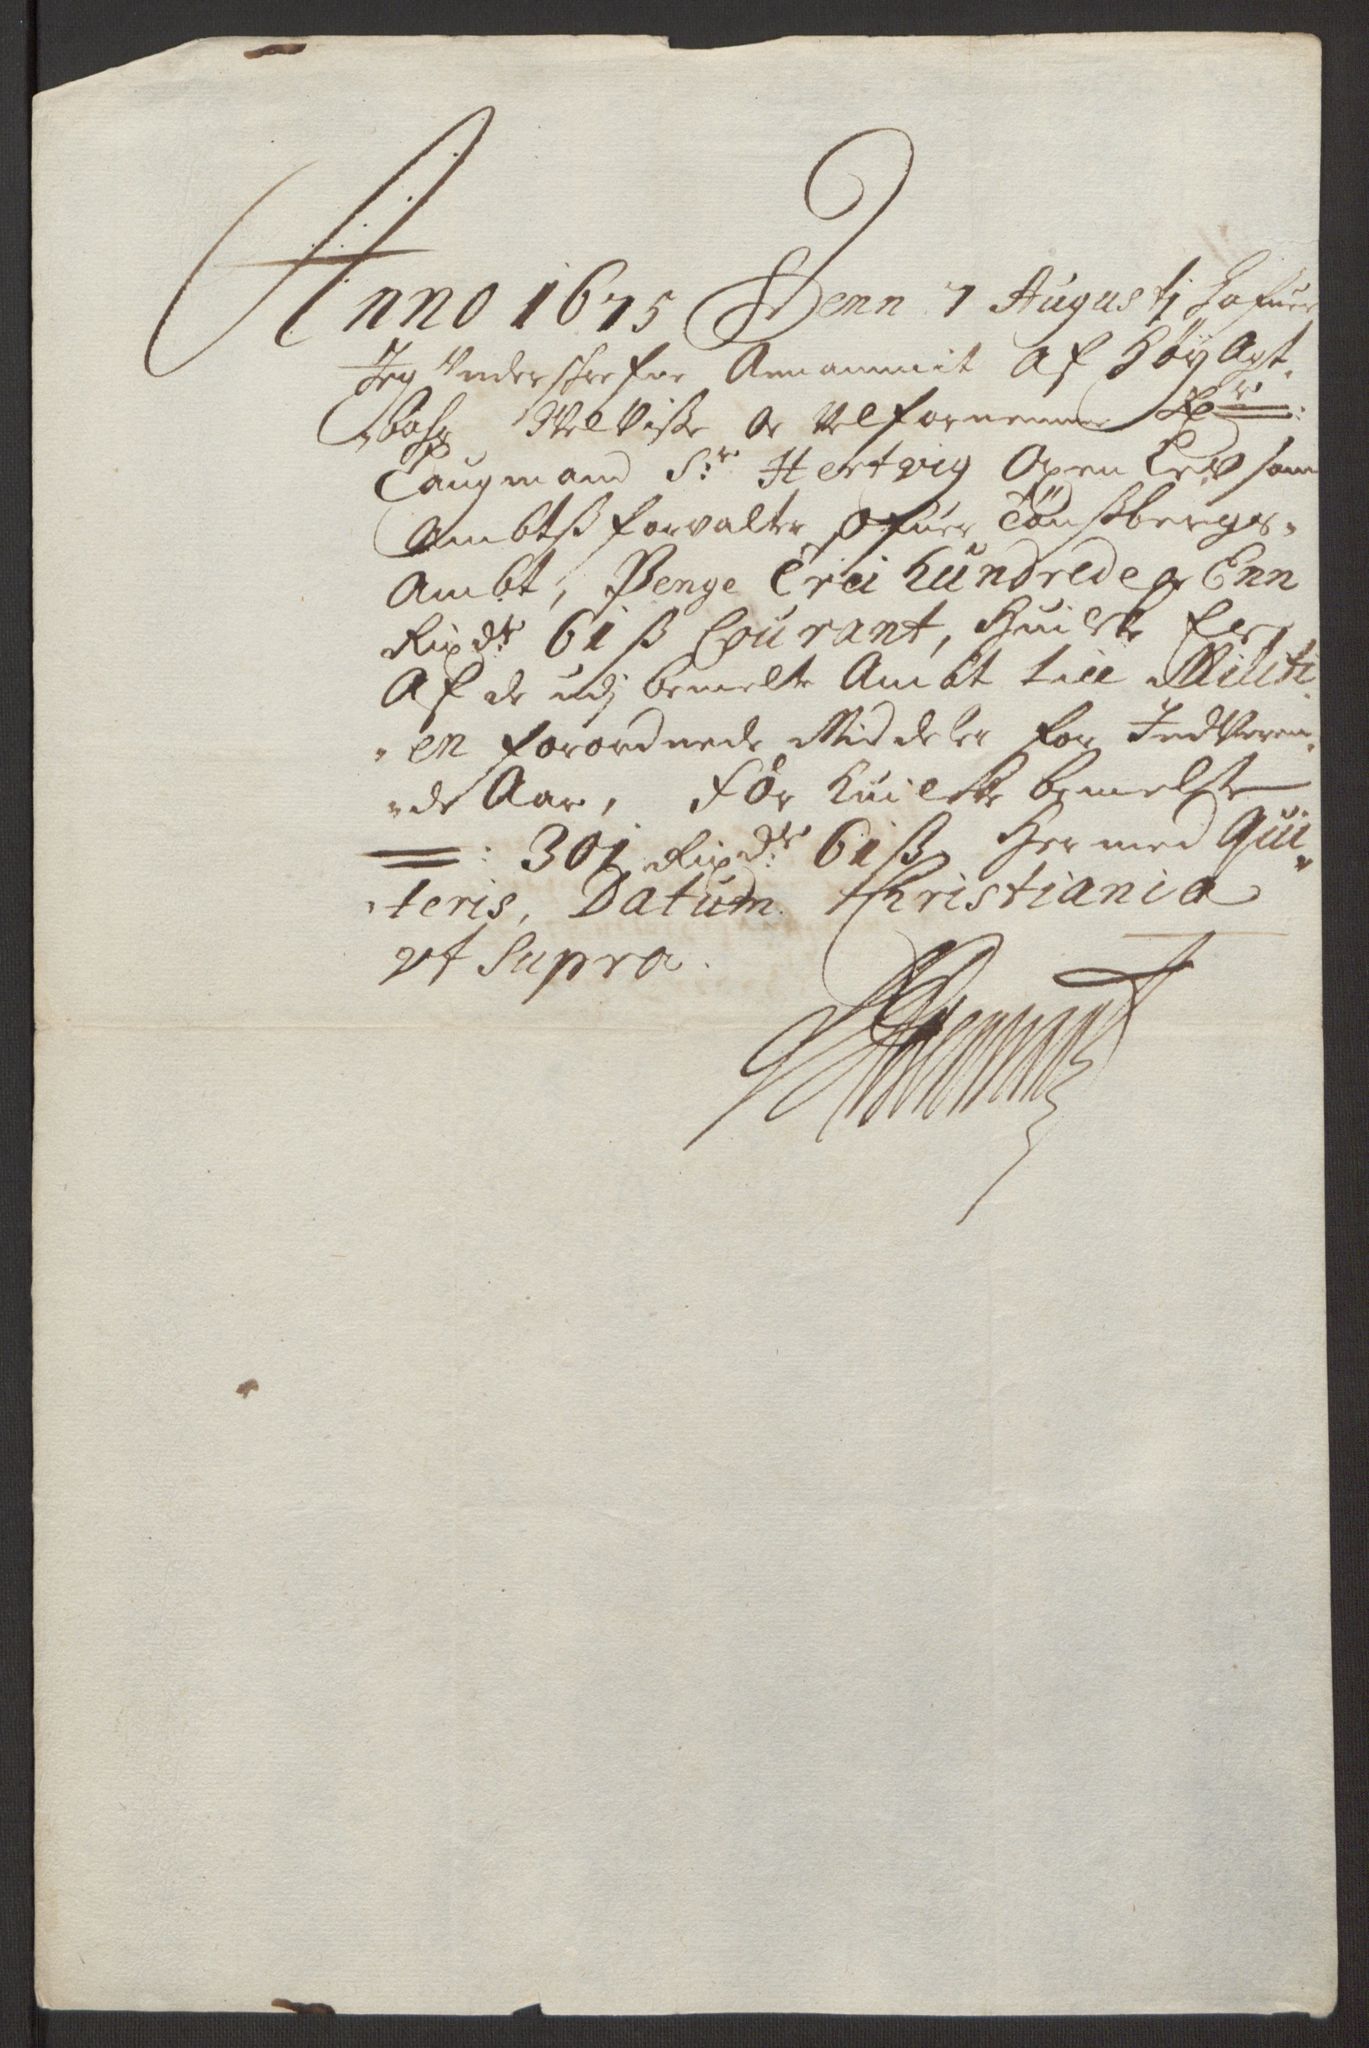 Anno 1675 Denn 7 Augustj hafuer
Jeg Underschrefne Annammit Af höy Agt
bahr Velviße og Velfornemme Hr:
Laugmand Sr. Hertvig Oxen Løv som
Ambtßforvalter ofuer Tönßbergs
Ambt, Penge Trei hundrede og Enn
Rixdr 61 ß Courant, Huilche Er
Af de udj bemelte Ambt till Militi
en forordnede Middeler for Indverren
de Aar, För huilche bemelte
301 Rixdr: 61 ß Hermed Qui
teris, Datum Christiania
ut Supra.